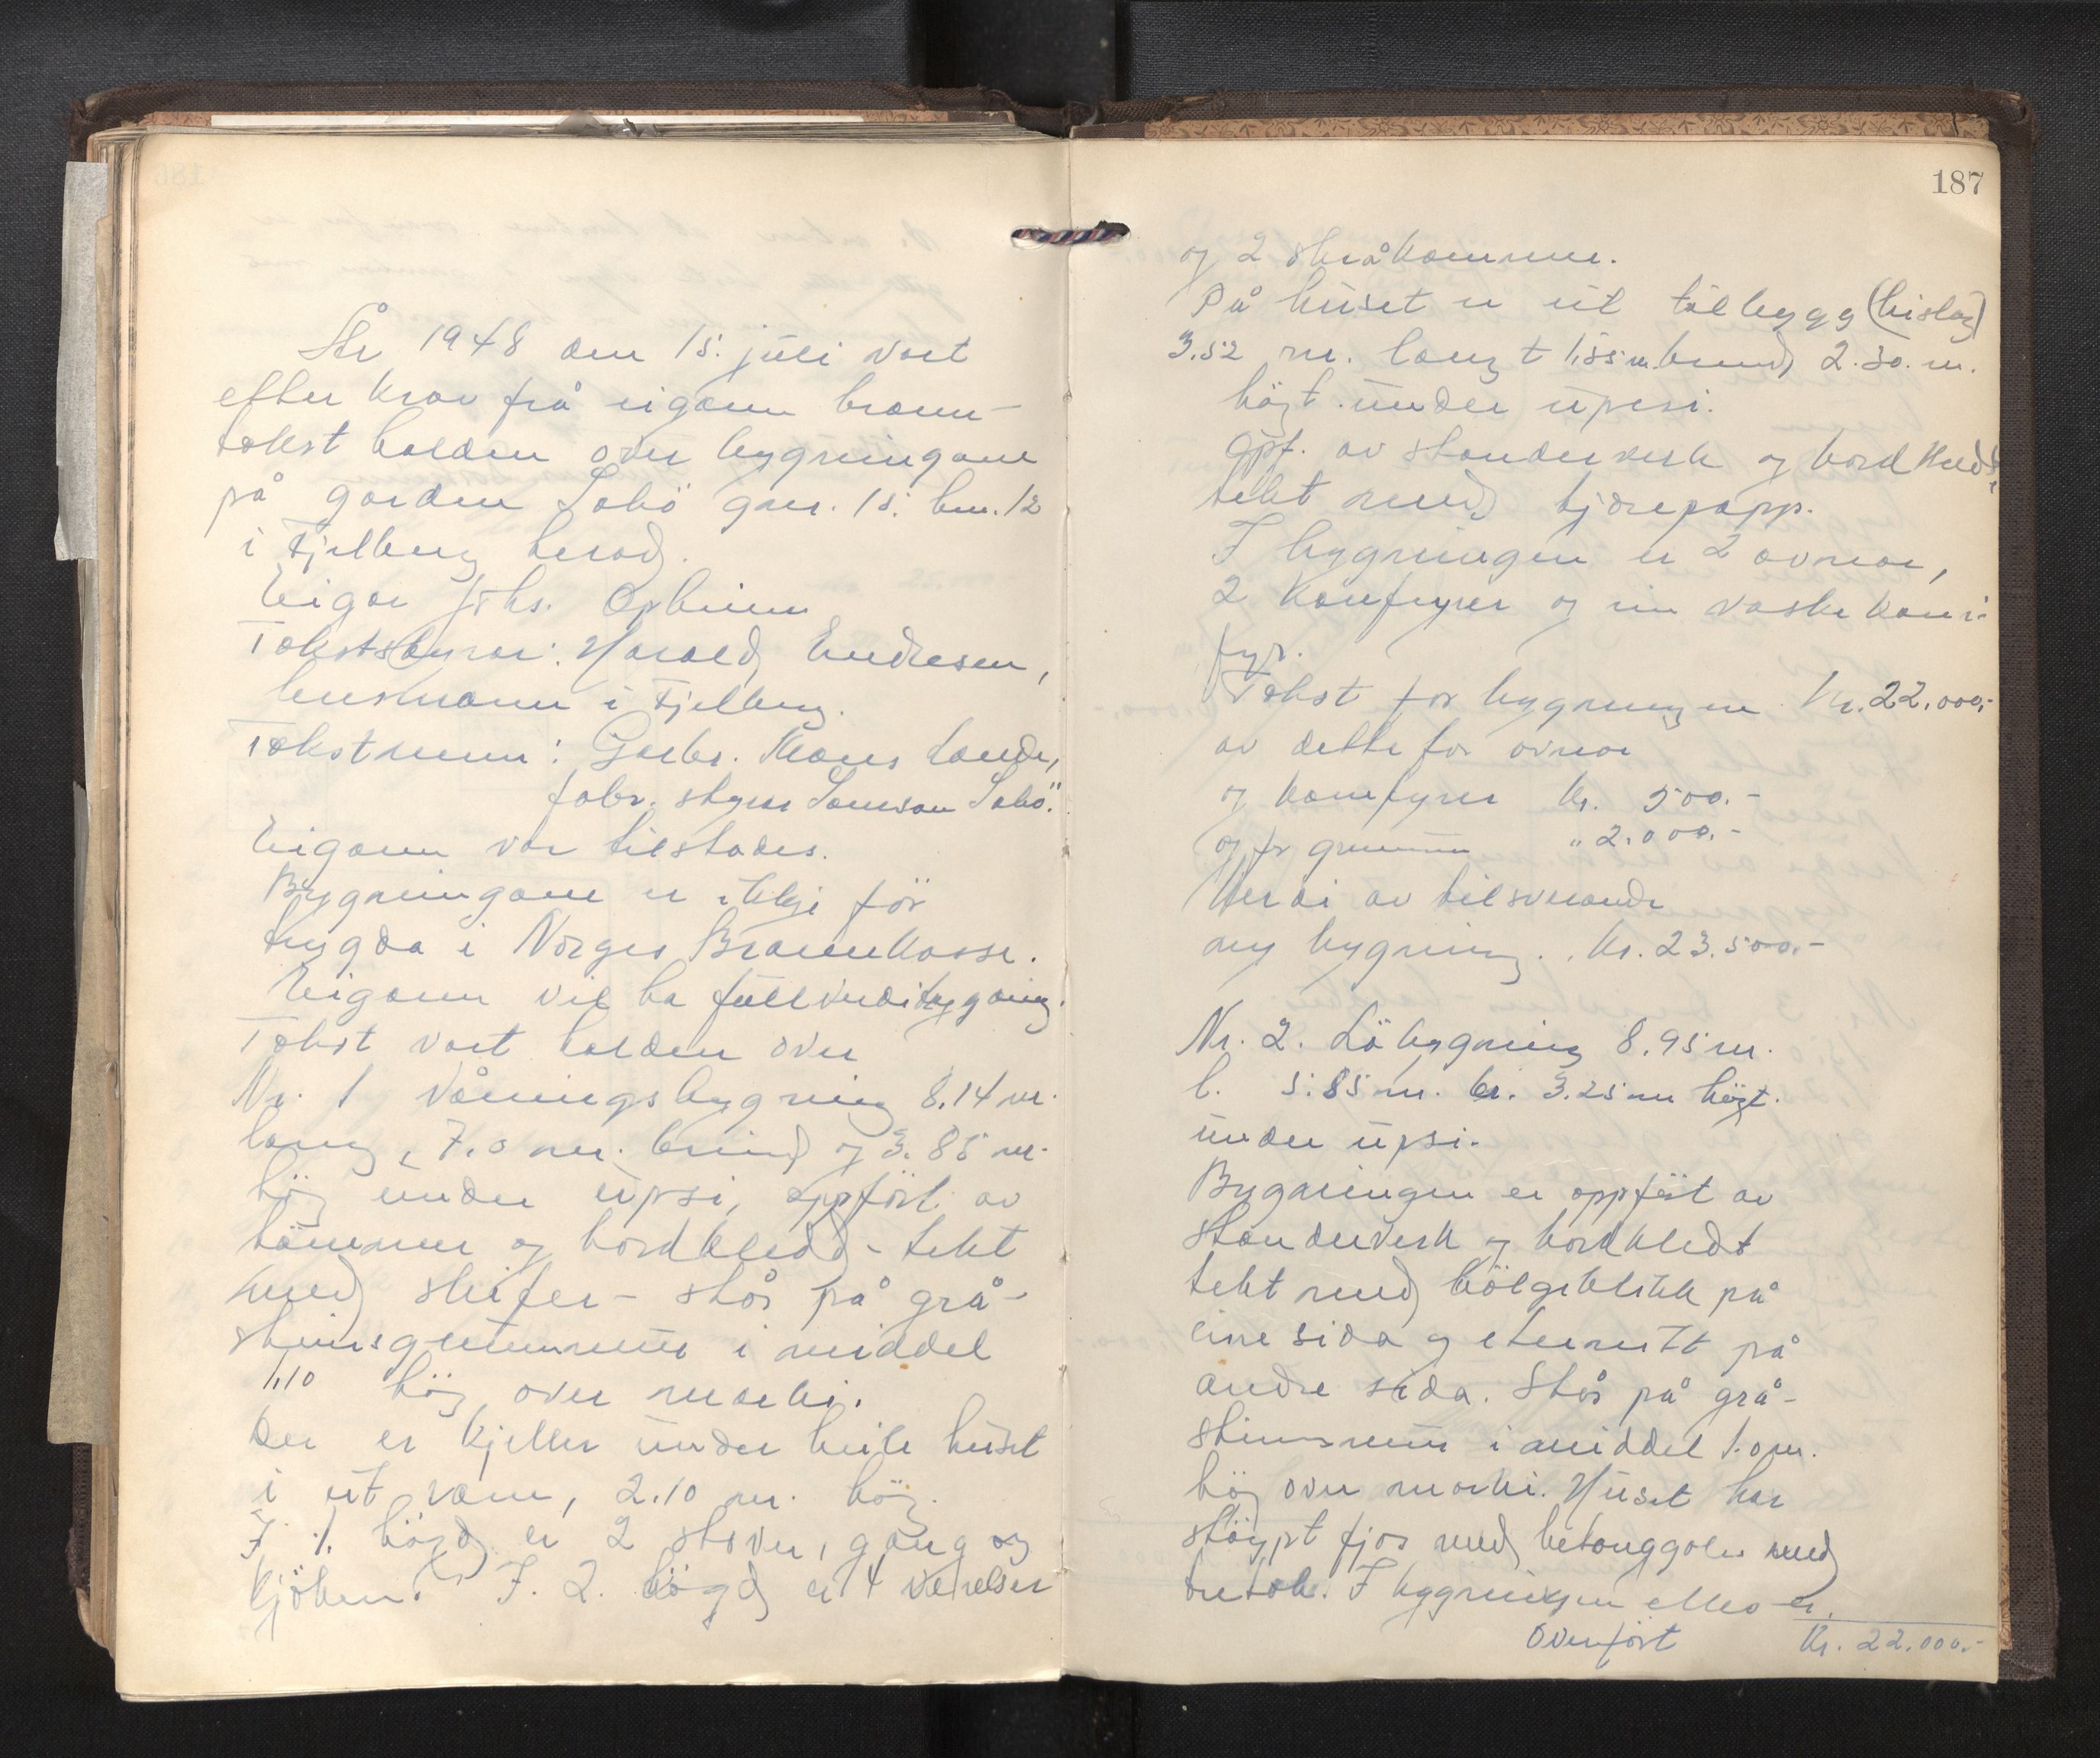 År 1948 den 15. juli vart
etter krav frå eigaren brann-
takst halden over bygningane
på garden Sæbö gnr. 15. bnr. 12
i Fjelberg herad.
Eigar Johs. Opheim
Takststyrar: Harald Endresen,
lensmann i Fjelberg.
Takstmenn: Gardbr. Mons Lande,
fabr. styrar Samson Sæbö.
Eigaren var tilstades.
Bygningane er ikkje för
trygda i Norges Brannkasse.
Eigaren vil ha fullverditrygding.
Takst vart halden over
Nr. 1 Våningsbygning 8.14 m.
lang, 7.0 m. breid og 3.85 m.
hög under upsi, oppfört av
tömmer og bordkledd - tekt
med skifer - står på grå-
steinsgrunnmur i middel
1,10 hög over marki.
Der er kjeller under heile huset
i eit rom, 2.10 m. hög.
I 1. högd er 2 stover, gang og
kjöken. I. 2. högd er 4 værelser
187
og 2 skråkammer.
På huset er eit tilbygg (bislag)
3.52 m. langt 1,55 m. breid, 2.30. m.
högt under upsi.
Opf. av standerverk og bordkledt,
tekt med tjærepapp.
I bygningen er 2 ovnar,
2 komfyrer og ein vaskekom-
fyr.
Takst for bygningen Kr. 22.000,-
av dette for ovnar
og komfyrer Kr. 500.-
og for grunnmur " 2.000.-
Verdi av tilsvarande
ny bygning. Kr. 23.500.-
Nr. 2. Löbygning 8.95 m.
l. 5.85 m. br. 3.25 m högt.
under upsi.
Bygningen er oppfört av
standerverk og bordkledt
tekt med bölgeblikk på
eine sida og eternitt på
andre sida. Står på grå-
steinsmur i middel 1.0 m.
hög over marki. Huset har
stöypt fjos med betonggolv med
tretak. I bygningen elles er.
Överfört Kr. 22.000.-